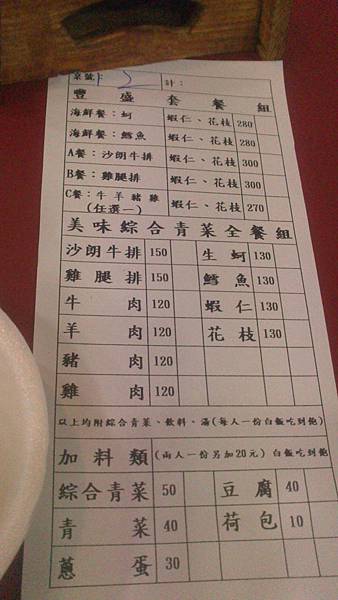 桌號: 2 計:
豐盛套餐組
海鮮餐:蚵 蝦仁、花枝 280
海鮮餐:鱈魚 蝦仁、花枝 280
A餐:沙朗牛排 蝦仁、花枝 300
B餐:雞腿排 蝦仁、花枝 300
C餐:牛羊豬雞(任選一) 蝦仁、花枝 270
美味綜合青菜全餐組
沙朗牛排 150 生蚵 130
雞腿排 150 鱈魚 130
牛肉 120 蝦仁 130
羊肉 120 花枝 130
豬肉 120
雞肉 120
以上均附綜合青菜、飲料、湯(每人一份白飯吃到飽)
加料類 (兩人一份另加20元)白飯吃到飽
綜合青菜 50 豆腐 40
青菜 40 荷包 10
蔥蛋 30